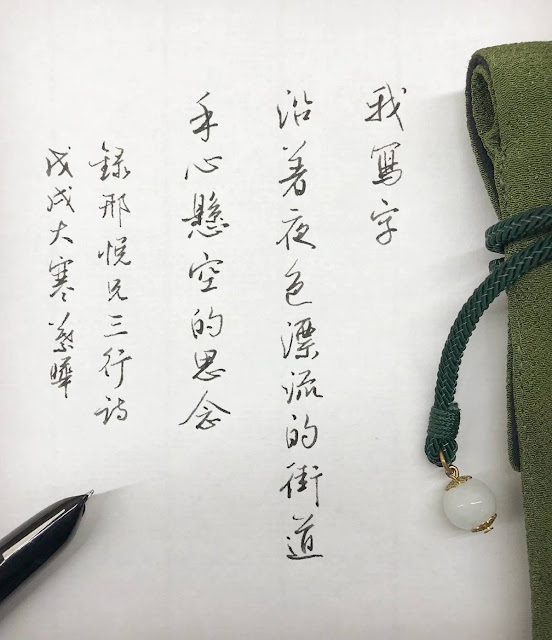 我寫字
沿著夜色漂流的街道
手心懸空的思念
錄邢悅兄三行詩
戊戌大寒蔡曄